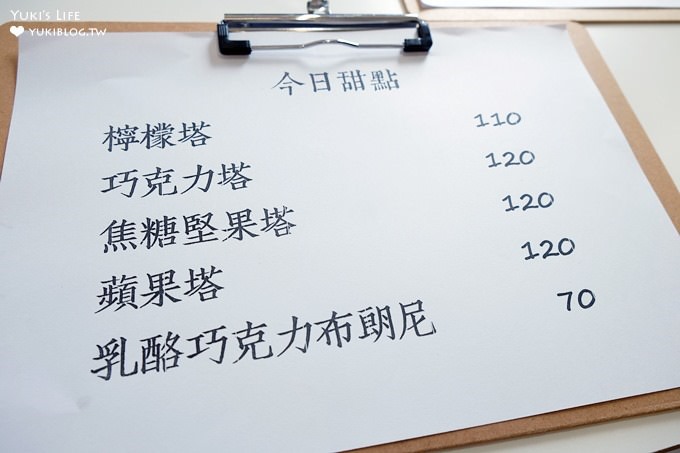 YUKI'S LIFE
YUKIBLOG.TW
今日甜點
檸檬塔 110
巧克力塔 120
焦糖堅果塔 120
蘋果塔 120
乳酪巧克力布朗尼 70